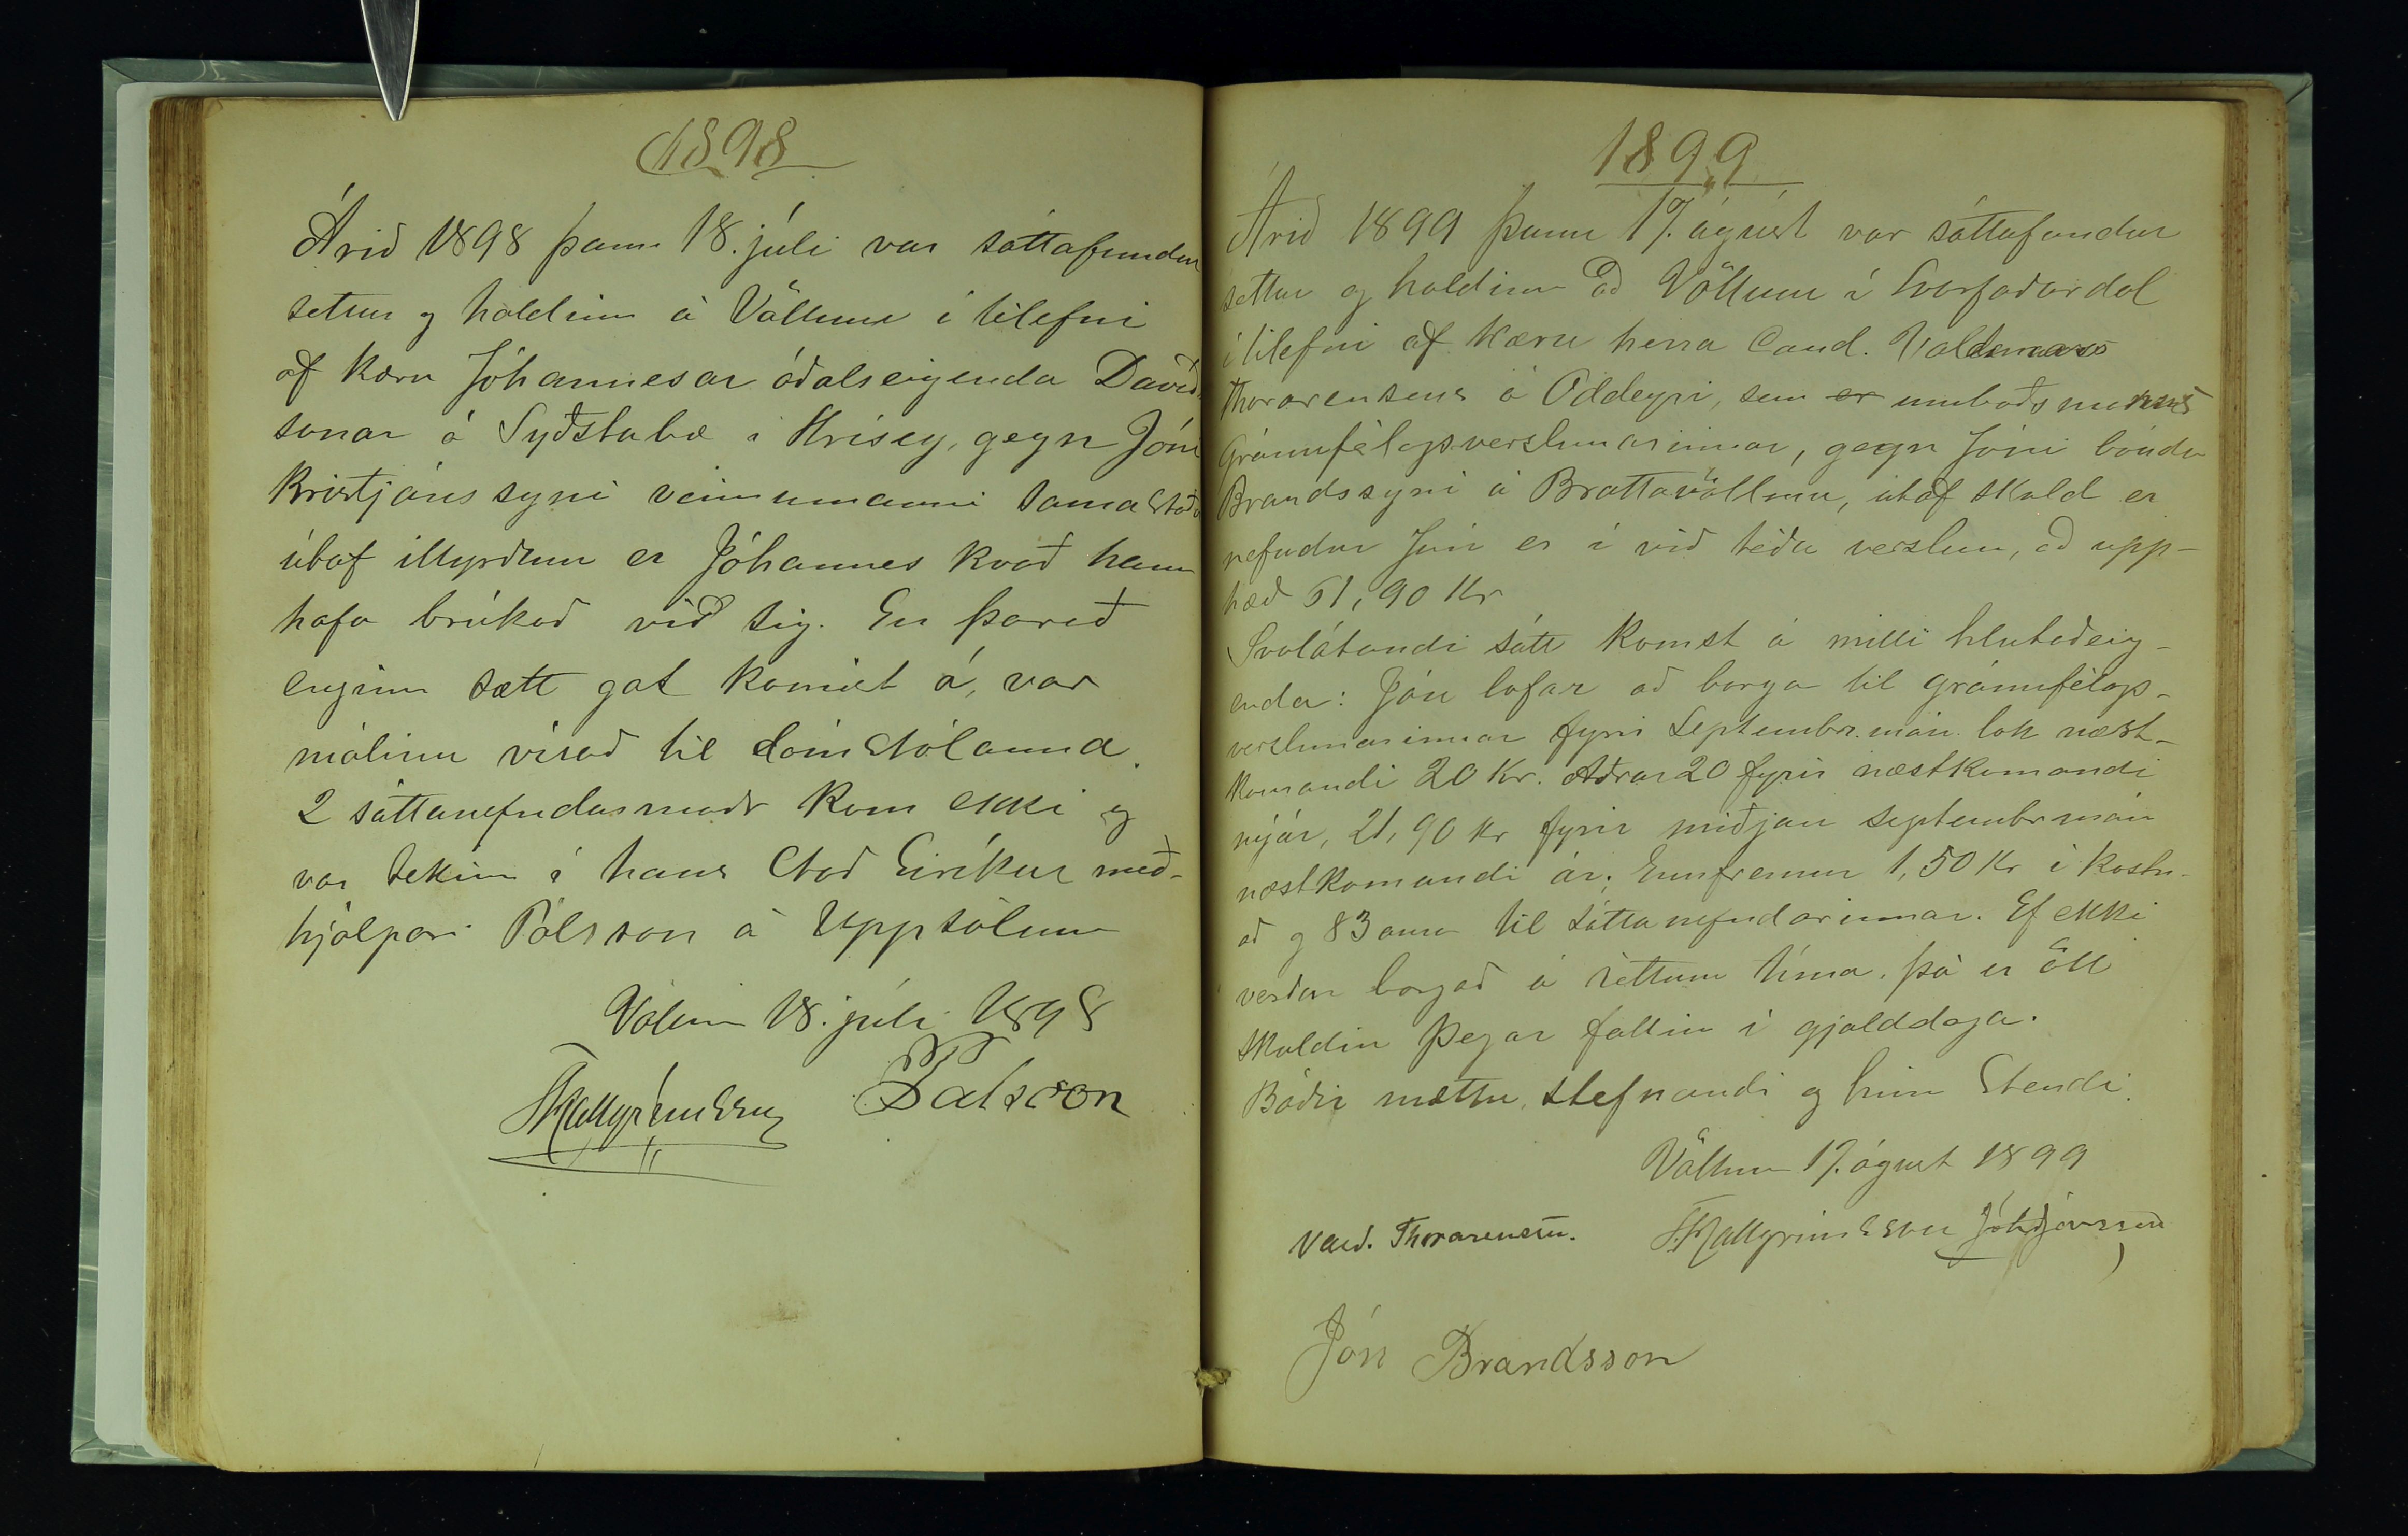 1898
Árið 1898 þann 18. júli var sáttafundur
settur og haldinn á Völlum í tilefni
af kæru Jóhannesar óðalseigenda Davíðs-
sonar á Syðstabæ i Hrísey, gegn Jóni
Kristjánssyni vinnumanni samastaðar
útaf illyrðum er Jóhannes kvað hann
hafa brúkað við sig. En þareð
enginn sætt gat komist á, var
málinu vísað til dómstólanna.
2 sáttanefndarmaðr kom ekki og
var tekinn í hans stað Eiríkur með-
hjálpari Pálsson á Uppsölum
Völlum 18. júli 1898
THallgrímsson Pálsson
1899
Árið 1899 þann 17. ágúst var sáttafundur
settur og haldinn að Völlum í Svarfaðardal
í tilefni af kæru herra Cand. Valdemars
Thorarensens á Oddeyri, sem er umboðsmanns
Gránufélagsverslunarinnar, gegn Jóni bónda
Brandssyni á Brattavöllum, útaf skuld er
nefndur Jón er í við téða verslun, að upp-
hæð 61,90 Kr
Svolátandi sátt komst á milli hlutaðeig-
enda: Jón lofar að borga til gránufélags-
verslunarinnar fyrir Septembr. mán. lok næst-
komandi 20 Kr. Aðrar 20 fyrir næstkomandi
nýár, 21,90 kr fyrir miðjan septembr mán
næstkomandi ár; Ennfremur 1,50 Kr í kostn-
að og 83 aura til sáttanefndarinnar. Ef ekki
verður borgað á réttum tíma, þá er öll
skuldin þegar fallin í gjalddaga.
Báðir mættu, stefnandi og hinn stendi.
Völlum 17. ágúst 1899
Vald. Thorarensen. THallgrimsson Jóh Jónsson
Jón Brandsson